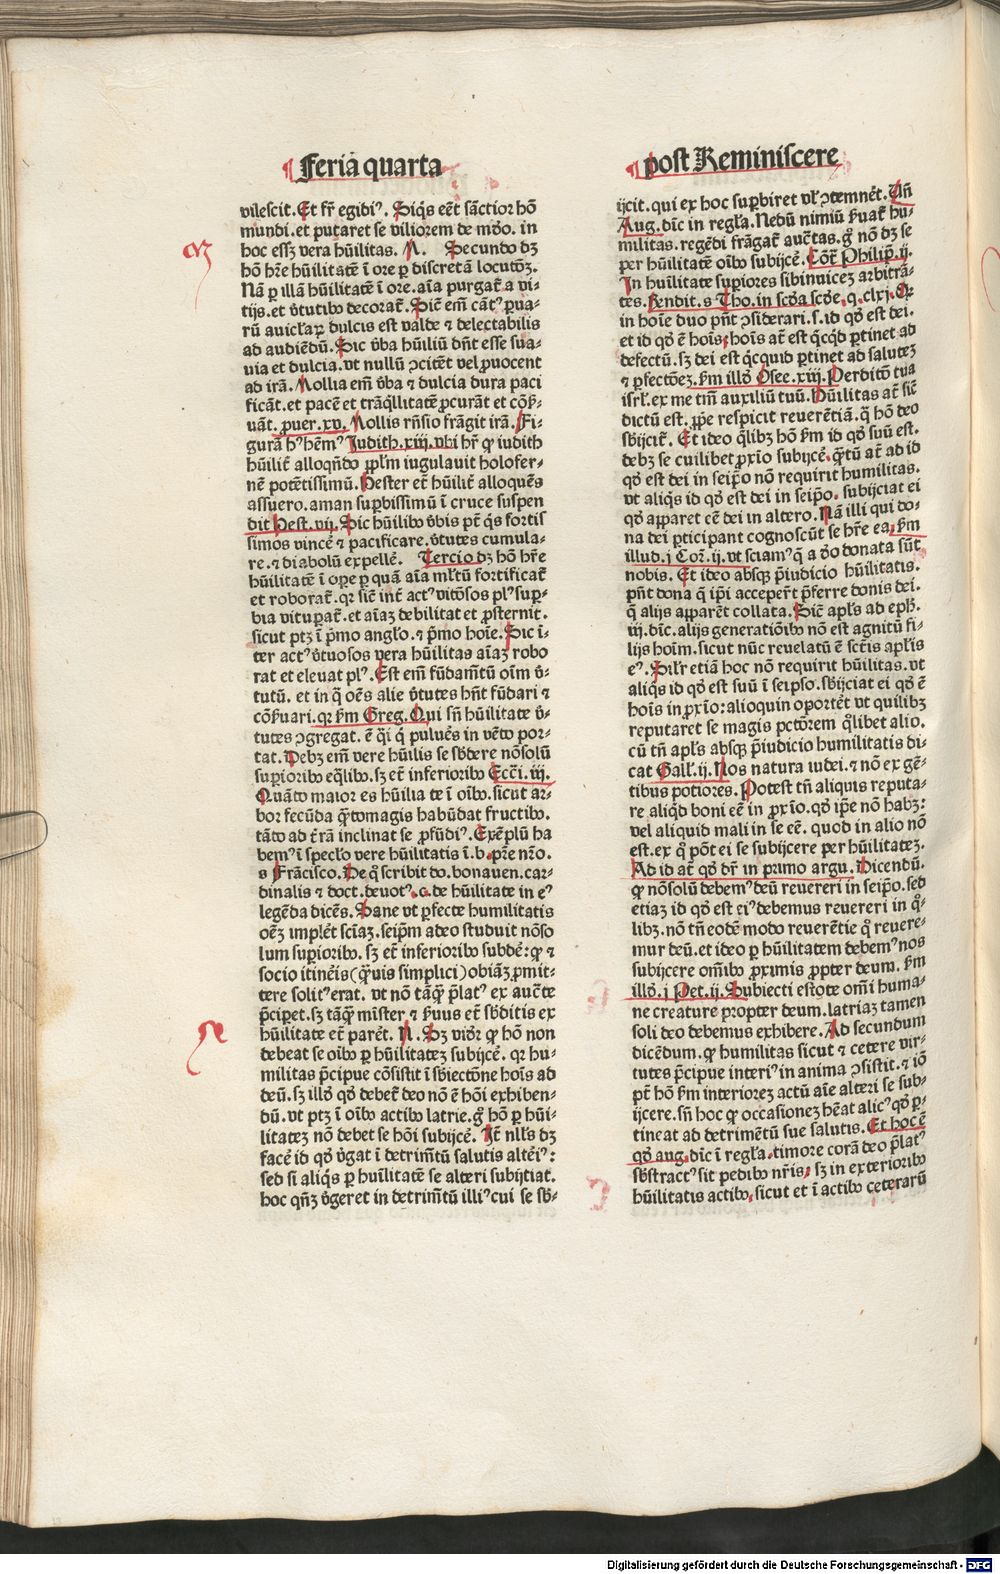 Feria quarta
post Reminiscere
vilescit. Et fr̄ egidiꝰ. Siq̄s eēt sāctior hō
mundi. et putaret se viliorem de mō̄o. in
hoc essꝫ vera hūilitas. M. Secundo dꝫ
hō hr̄e hūilitatē ī ore ꝑ discretā locutōꝫ.
Nā ꝑ illā hūilitatē ī ore. aīa purgat̄ a vi-
tijs. et v̄tutibꝰ decorat̄. Sic̄ em̄ cātꝰ ꝑua-
rū auicl'aꝝ dulcis est valde ⁊ delectabilis
ad audiēdū. Sic v̄ba hūiliū dn̄t esse sua-
uia et dulcia. vt nullū ꝯcitēt vel ꝓuocent
ad irā. Mollia em̄ v̄ba ⁊ dulcia dura paci
ficāt. et pacē et trāq̄llitatē ꝓcurāt et cōẜ-
uāt. ꝓuer. xv. Mollis rn̄sio frāgit irā. Fi-
gurā hꝰ hēmꝰ Judith. xiij. vbi hr̄ ꝙ iudith
hūilit̄ alloqn̄do ppl'm iugulauit holofer-
nē potētissimū. Hester et̄ hūilit̄ alloquēs
assuero. aman suꝑbissimū ī cruce suspen
dit Hest. vij. Sic hūilibꝰ v̄bis pt̄ q̄s fortis
simos vincē ⁊ pacificare. v̄tutes cumula-
re. ⁊ diabolū expellē. Tercio dꝫ hō hr̄e
hūilitatē ī oꝑe ꝑ quā aīa ml'tū fortificat̄
et roborat̄. qꝛ sic̄ int̄ actꝰ vitōsos plꝰ suꝑ-
bia vituꝑat̄. et aīaꝫ debilitat et ꝓsternit.
sicut ptꝫ ī p̄mo angl'o. ⁊ p̄mo hoīe. Sic ī-
ter actꝰ v̄tuosos vera hūilitas aīaꝫ robo
rat et eleuat plꝰ. Est em̄ fūdam̄tū oīm v̄-
tutū. et in q̄ oēs alie v̄tutes hn̄t fūdari ⁊
cōẜuari. qꝛ ẜm Greg. Qui sn̄ hūilitate v̄-
tutes ꝯgregat. ē q̄i q̄ puluēs in vēto por-
tat. Debꝫ em̄ vere hūilis se sb̄dere nōsolū
suꝑioribꝰ eq̄libꝰ. sꝫ et̄ inferioribꝰ Ecc̄i. iij.
Quāto maior es hūilia te ī oībꝰ. sicut ar-
bor fecūda q̄tomagis habūdat fructibꝰ.
tāto ad t̄rā inclinat se ꝓfūdiꝰ. Exēplū ha
bemꝰ ī specl'o vere hūilitatis ī. b. pr̄e nr̄o.
s Frācisco. De q̄ scribit do. bonauen. car-
dinalis ⁊ doct. deuotꝰ. c. de hūilitate in eꝰ
legēda dicēs. Sane vt ꝑfecte humilitatis
oēꝫ implēt scīaꝫ. seip̄m adeo studuit nōso
lum suꝑioribꝰ. sꝫ et̄ inferioribꝰ subdē: ꝙ ⁊
socio itinēis (q̄uis simplici) obiāꝫ ꝓmit-
tere solitꝰ erat. vt nō tāq̄ p̄latꝰ ex aucte
p̄ciꝑet. sꝫ tāq̄ mīster ⁊ ẜuus et̄ sb̄ditis ex
hūilitate et̄ parēt. N. Sꝫ vid̄r ꝙ hō non
debeat se oībꝰ ꝑ hūilitateꝫ subijcē. qꝛ hu-
militas p̄cipue cōsistit ī sb̄iectōne hoīs ad
deū. sꝫ illd̄ qd̄ debet̄ deo nō ē hōi exhiben-
dū. vt ptꝫ ī oībꝰ actibꝰ latrie. g̊ hō ꝑ hūi-
litateꝫ nō debet se hōi subijcē. It̄ nl'ls dꝫ
facē id qd̄ v̄gat ī detrim̄tū salutis alteīꝰ:
sed si aliq̄s ꝑ hūilitatē se alteri subijtiat.
hoc qn̄ꝫ v̄geret in detrim̄tū illiꝰ cui se sb̄-
ijcit. qui ex hoc suꝑbiret vl' ꝯtemnēt. Vn̄
Aug. dīc in regl'a. Nedū nimiū ẜuat̄ hu-
militas. regēdi frāgat̄ auctas. g̊ nō dꝫ se
per hūilitatē oībꝰ subijcē. Cōt̄ Philip̄. ij.
In hūilitate suꝑiores sibinuiceꝫ arbitrā-
tes. Rendit. s Tho. in scd̄a scd̄e. q. clxj. Qꝛ
in hoīe duo pn̄t ꝯsiderari. s. id qd̄ est dei.
et id qd̄ ē hoīs. hoīs at̄ est qͥcqͥd ꝑtinet ad
defectū. sꝫ dei est qͥcquid ꝑtinet ad saluteꝫ
⁊ ꝑfectōeꝫ. ẜm illd̄ Osee. xiij. Perditō tua
isrl'. ex me tm̄ auxiliū tuū. Hūilitas at̄ sic̄
dictū est. ꝓp̄e respicit reuerētiā. q̄ hō deo
sb̄ijcit̄. Et ideo q̄libꝫ hō ẜm id qd̄ suū est.
debꝫ se cuilibet ꝓxīo subijcē. q̄tū at̄ ad id
qd̄ est dei in seip̄o nō requirit humilitas.
vt aliq̄s id qd̄ est dei in seip̄o. subijciat ei
qd̄ apparet eē dei in altero. Nā illi qui do-
na dei ꝑticipant cognoscūt se hr̄e ea. ẜm
illud. j Cor. ij. vt sciamꝰ q̄ a d̄o donata sūt
nobis. Et ideo absqꝫ p̄iudicio hūilitatis.
pn̄t dona q̄ ip̄i acceper̄t p̄ferre donis dei.
q̄ alijs apparēt collata. Sic̄ apl's ad eph̄.
iij. dīc. alijs generatiōibꝰ nō est agnitū fi-
lijs hoīm. sicut nūc reuelatū ē sct̄is apl'is
eꝰ. Silr̄ etiā hoc nō requirit hūilitas. vt
aliq̄s id qd̄ est suū ī seipso. sb̄ijciat ei qd̄ ē
hoīs in ꝓxīo: alioquin oportēt vt quilibꝫ
reputaret se magis pctōrem q̄libet alio.
cū tn̄ apl's absqꝫ p̄iudicio humilitatis di-
cat Gal'l. ij. Nos natura iudei. ⁊ nō ex gē-
tibus potiores. Potest tn̄ aliquis reputa-
re aliqͥd boni eē in ꝓxīo. qd̄ ip̄e nō habꝫ:
vel aliquid mali in se eē. quod in alio nō
est. ex q̊ pōt ei se subijcere per hūilitateꝫ.
Ad id at̄ qd̄ dr̄ in primo argu. Dicendū.
ꝙ nōsolū debemꝰ deū reuereri in seip̄o. sed
etiaꝫ id qd̄ est eiꝰ debemus reuereri in q̊-
libꝫ. nō tn̄ eodē modo reuerētie q̊ reuere-
mur deū. et ideo ꝑ hūilitatem debemꝰ nos
subijcere om̄ibꝰ ꝓximis ꝓpter deum. ẜm
illd̄. j Pet. ij. Subiecti estote om̄i huma-
ne creature propter deum. latriaꝫ tamen
soli deo debemus exhibere. Ad secundum
dicēdum. ꝙ humilitas sicut ⁊ cetere vir-
tutes p̄cipue interiꝰ in anima ꝯsistit. ⁊ iō
pt̄ hō ẜm interioreꝫ actū aīe alteri se sub-
ijcere. sn̄ hoc ꝙ occasioneꝫ hēat alicꝰ qd̄ ꝑ-
tineat ad detrimētū sue salutis. Et hoc ē
qd̄ aug. dīc ī regl'a. timore corā deo p̄latꝰ
sb̄stractꝰ sit pedibꝰ nr̄is. sꝫ in exterioribꝰ
hūilitatis actibꝰ. sicut et ī actibꝰ ceterarū
Digitalisierung gefördert durch die Deutsche Forschungsgemeinschaft - DFG